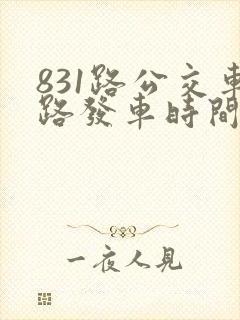 831路公交車
路發車時間
一夜人見